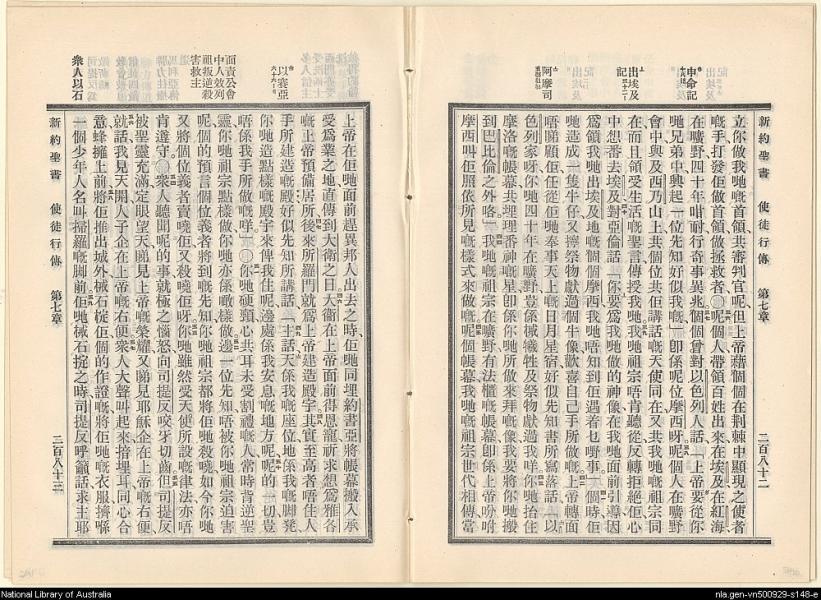 申命記
出埃及記
阿摩司
新約聖書 使徒行傳 第七章 二百八十二
立你做我哋嘅首領共審判官呢但上帝藉個個在荊棘中顯現之使者
嘅手打發佢做首領做拯救者〇呢個人帶領百姓出來在埃及在紅海
在曠野四十年咁耐行奇事異兆個個曾對以色列人話上帝要從你
哋兄弟中興起一位先知好似我嘅卽係呢位摩西呀呢個人在曠野
會中與及西乃山上共個位共佢講話嘅天使同在又共我哋嘅祖宗同
在而且領受生活嘅聖言傳授我哋我哋祖宗唔肯聽從反轉拒絕佢心
中想番去埃及對亞倫話你要爲我哋做的神像在我哋面前引導因
爲領我哋出埃及地嘅個個摩西我哋唔知到佢遇着乜嘢事個時佢
哋造成一隻牛仔又擰祭物獻過個牛像歡喜自己手所做嘅上帝轉面
唔睇顧佢任從佢哋奉事天上嘅日月星宿好似先知書所寫落話以
色列家呀你哋四十年在曠野豈係械犧牲及祭物獻過我咩你哋抬住
摩洛嘅帳幕共埋理番神嘅星卽係你哋所做來拜嘅像我要將你哋搬
到巴比倫之外咯我哋嘅祖宗在曠野有法櫃嘅帳幕卽係上帝吩咐
摩西叫佢照依所見嘅樣式來做嘅呢個帳幕我哋嘅祖宗世代相傳當
以賽亞
面責公會
中人效列
祖叛逆殺
害救主
衆人以石
上帝在佢哋面前趕異邦人出去之時佢哋同埋約書亞將帳幕搬入承
受爲業之地直傳到大衛之日大衛在上帝面前得恩寵祈求想爲雅各
嘅上帝預備居所後來所羅門就爲上帝建造殿宇其實至高者唔住人
手所建造嘅殿好似先知所講話主話天係我嘅座位地係我嘅脚凳
你哋造點樣嘅殿宇來俾我住呢邊處係我安息嘅地方呢呢的一切豈
唔係我手所做嘅咩〇你哋硬頸心共耳未受割禮嘅人常時背逆聖
靈你哋祖宗點樣做你哋亦係嗽樣做邊一位先知唔被你哋祖宗迫害
呢個的預言個位義者將到嘅先知你哋祖宗都將佢哋殺曉如今你哋
又將個位義者賣曉佢又殺曉佢呀你哋雖然受天使所設嘅律法亦唔
肯遵守〇衆人聽聞呢的事就極之惱怒向司提反咬牙切齒但司提反
被聖靈充滿定眼望天睇見上帝嘅榮耀又睇見耶穌企在上帝嘅右便
就話我見天開人子企在上帝嘅右便衆人大聲叫起來揞埋耳同心合
意蜂擁上前將佢推出城外械石掟佢個的作證嘅將佢哋嘅衣服擠喺
一個少年人名叫掃羅嘅脚前佢哋械石掟之時司提反呼籲話求主耶
新約聖書 使徒行傳 第七章 二百八十三
National Library of Australia
nla.gen-vn500929-s148-e